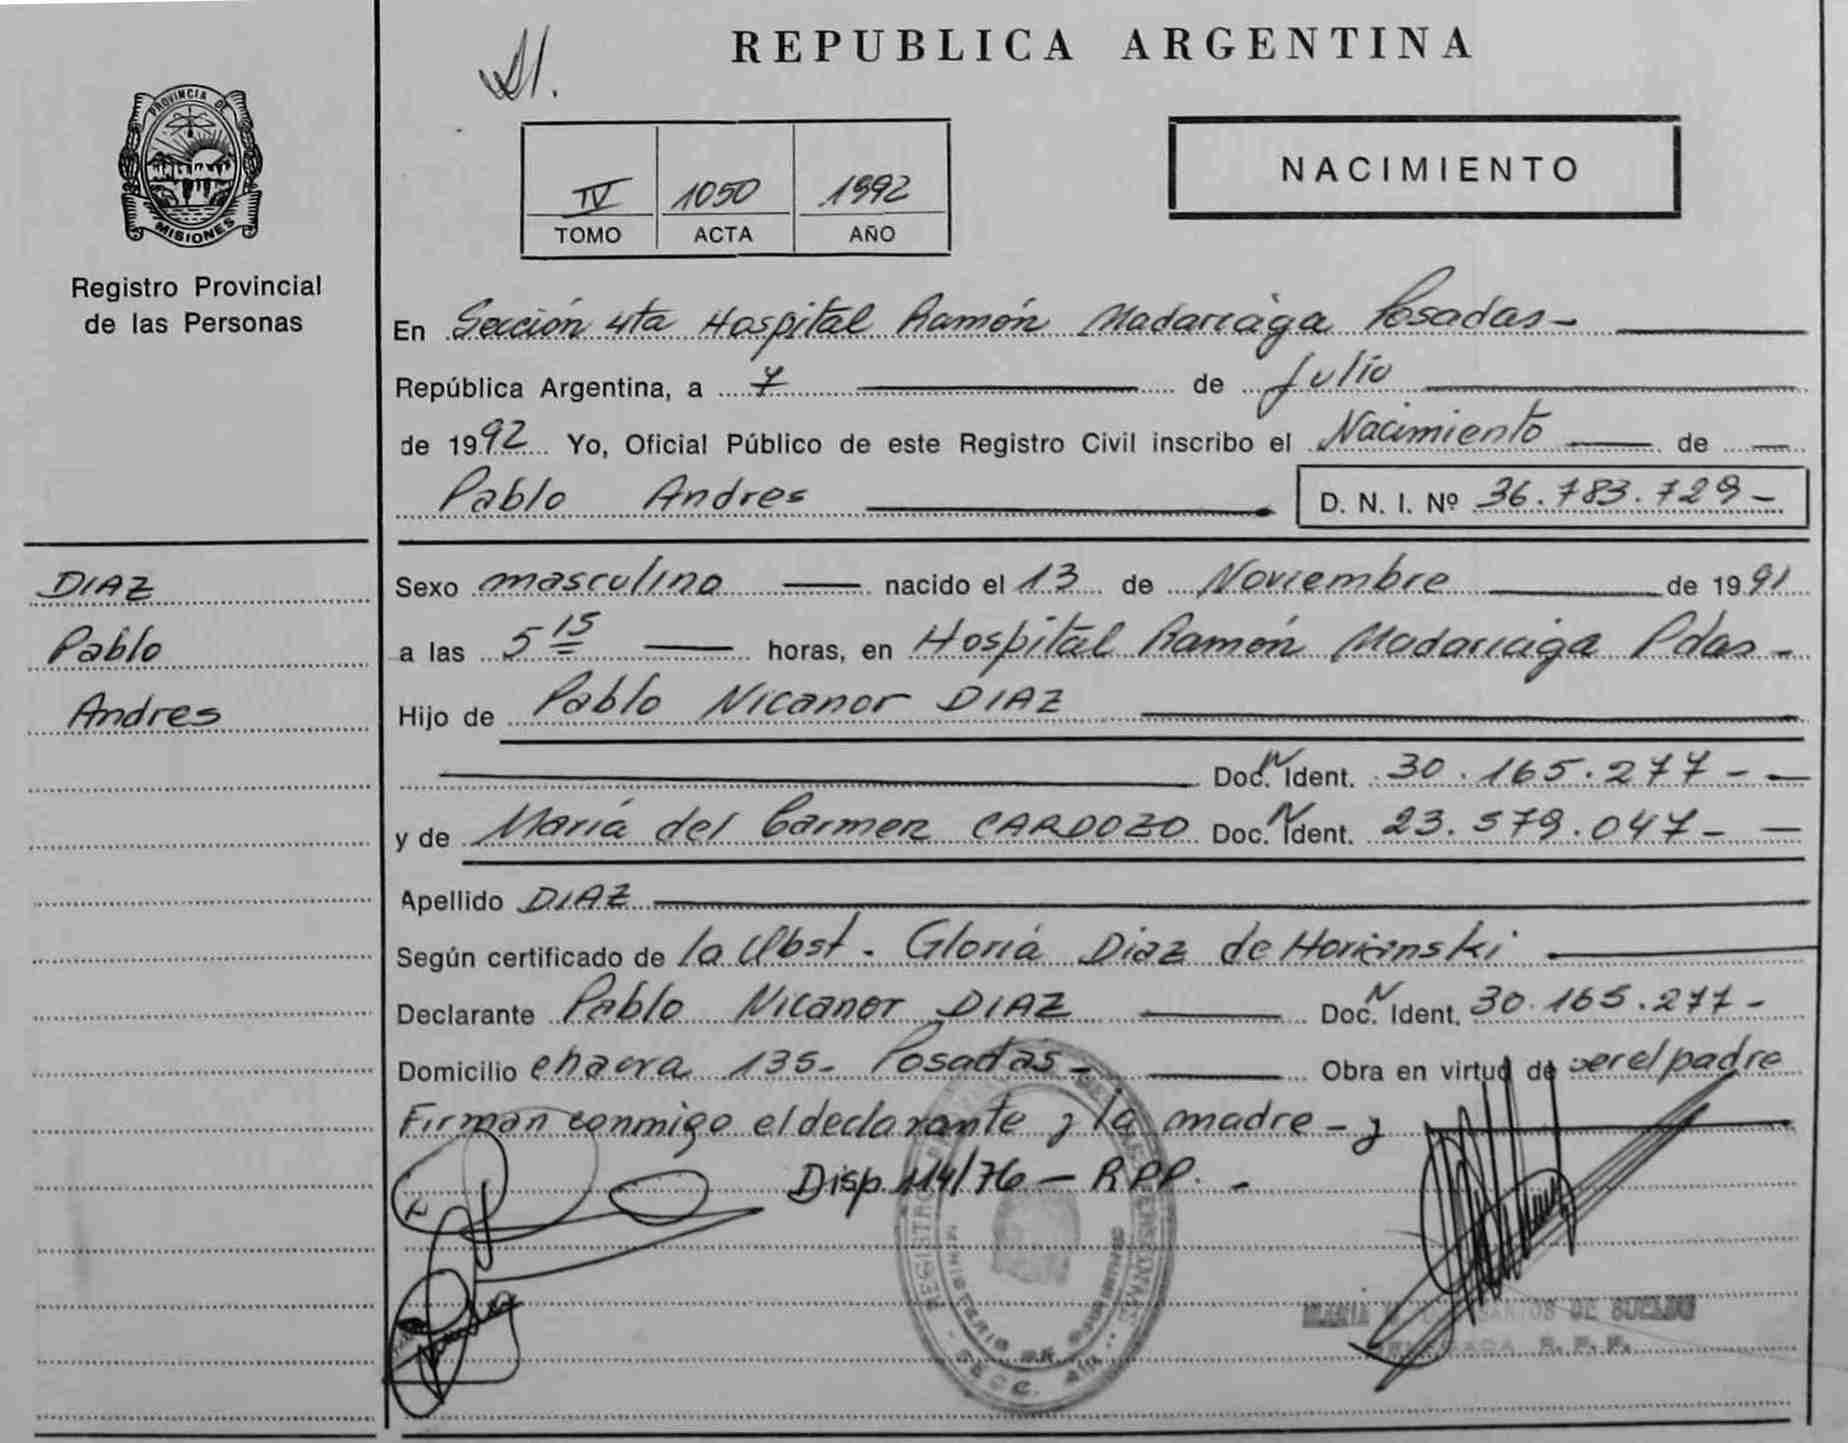 REPUBLICA ARGENTINA
PROVINCIA DE
MISIONES
Registro Provincial
de las Personas
NACIMIENTO
IV 1050 1992
TOMO ACTA AÑO
En Sección 4ta Hospital Ramón Madariaga Posadas-
República Argentina, a 7 de Julio
de 1992 Yo, Oficial Público de este Registro Civil inscribo el Nacimiento de
Pablo Andres D. N. I. Nº 36.783.729-
DIAZ
Pablo
Andres
Sexo masculino nacido el 13 de Noviembre de 1991
a las 5 15 horas, en Hospital Ramón Madariaga Pdas-
Hijo de Pablo Nicanor DIAZ
Doc. N Ident. 30.165.277-
y de María del Carmen CARDOZO Doc. N Ident. 23.579.047-
Apellido DIAZ
Según certificado de la Obst. Gloria Diaz de
Declarante Pablo Nicanor DIAZ Doc. N Ident. 30.165.277-
Domicilio chacra 135- Posadas- Obra en virtud de ser el padre
Firman conmigo el declarante y la madre-
Disp. 114/76 - RPP. -
MINISTERIO DE GOBIERNO
SECC. 4ta
DE SUELDO
R. P. P.